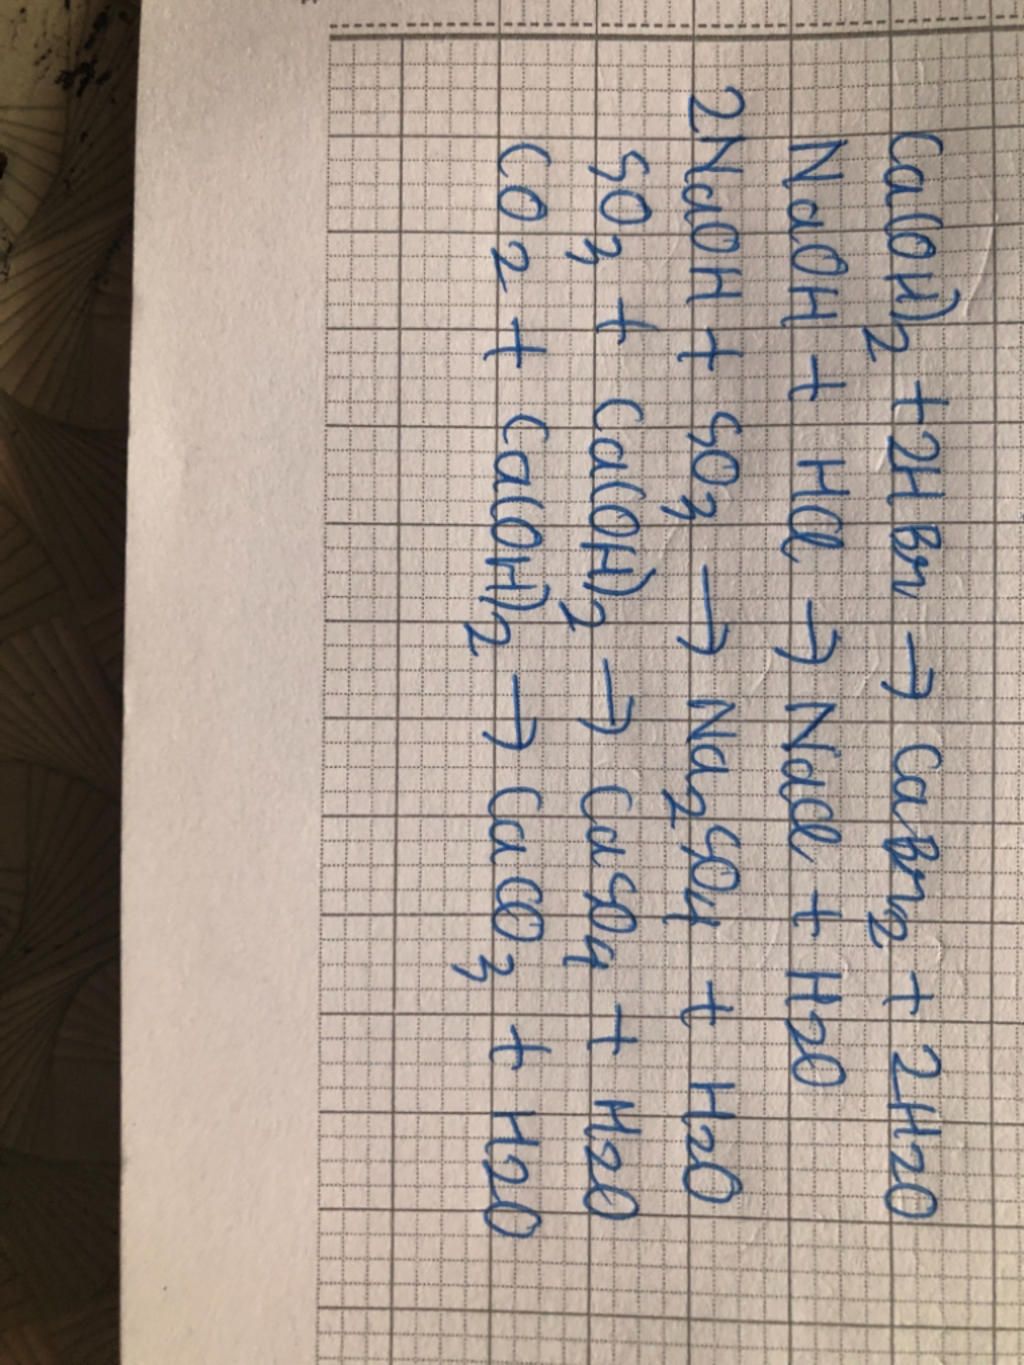 Ca(OH)2 + 2HBr → CaBr2 + 2H2O
NaOH + HCl → NaCl + H2O
2NaOH + SO3 → Na2SO4 + H2O
SO3 + Ca(OH)2 → CaSO4 + H2O
CO2 + Ca(OH)2 → CaCO3 + H2O